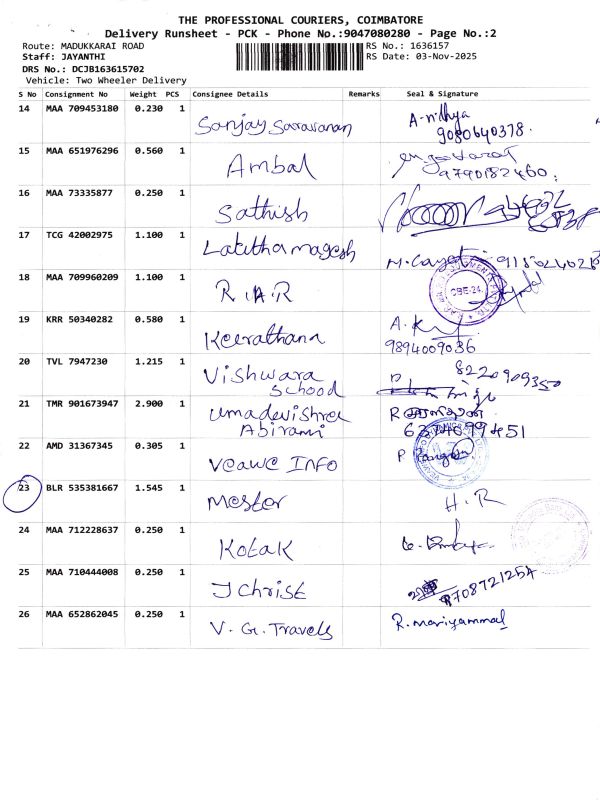 THE PROFESSIONAL COURIERS, COIMBATORE
Delivery Runsheet - PCK - Phone No.:9047080280 - Page No.:2
Route: MADUKKARAI ROAD RS No.: 1636157
Staff: JAYANTHI RS Date: 03-Nov-2025
DRS No.: DCJB163615702
Vehicle: Two Wheeler Delivery
S No Consignment No Weight PCS Consignee Details Remarks Seal & Signature
14 MAA 709453180 0.230 1 Sanjay Saravanan A-nithya
9080640378.
15 MAA 651976296 0.560 1 Ambal
9790182460.
16 MAA 73335877 0.250 1 Sathish
17 TCG 42002975 1.100 1 Lalitha magesh
18 MAA 709960209 1.100 1 R.A.R CBE-24.
19 KRR 50340282 0.580 1 Keerathana A.K
9894009036
20 TVL 7947230 1.215 1 Vishwara 8220909350
School
21 TMR 901673947 2.900 1 Umadevishree
Abirami
22 AMD 31367345 0.305 1 Veawe INFO P
23 BLR 535381667 1.545 1 Mestor H.R
24 MAA 712228637 0.250 1 Kotak
25 MAA 710444008 0.250 1 J Christ
26 MAA 652862045 0.250 1 V. G. Travels R. mariyammal